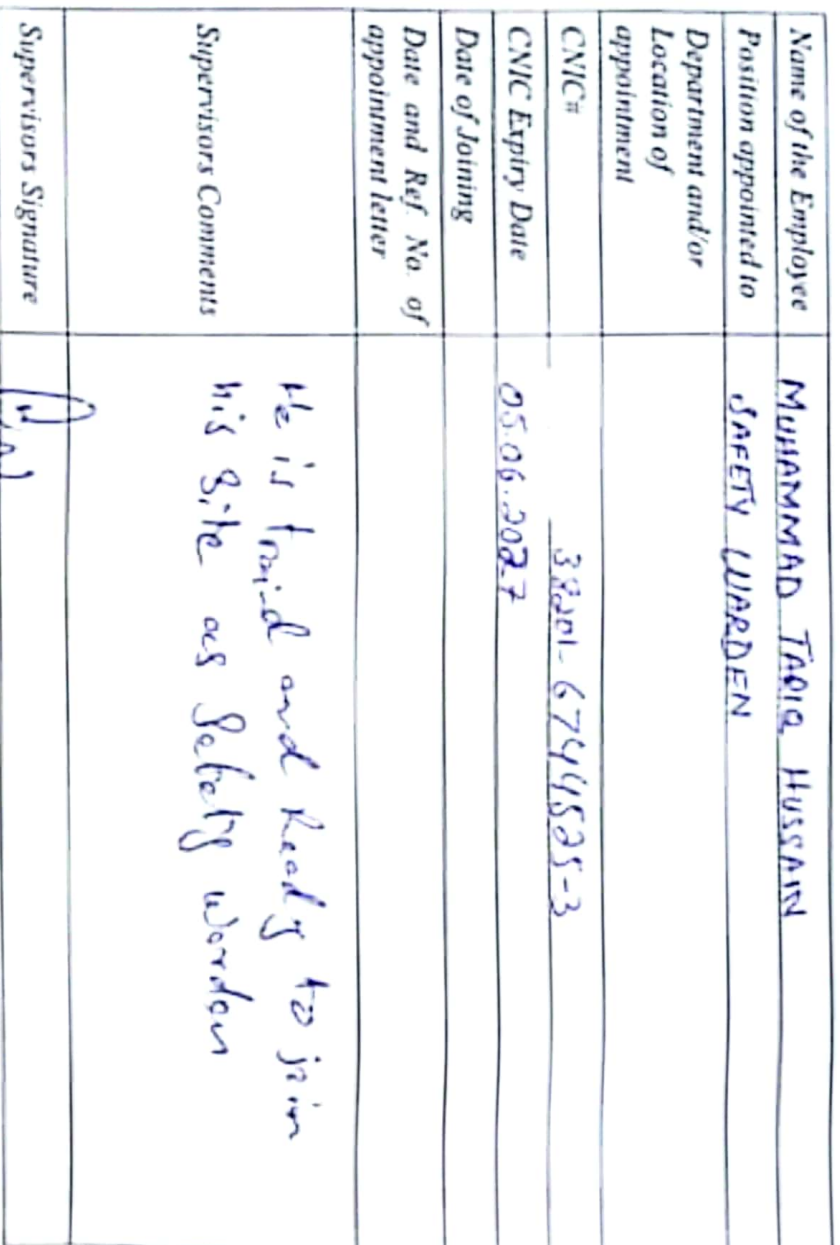 Name of the Employee MUHAMMAD TARIQ HUSSAIN
Position appointed to SAFETY WARDEN
Department and/or
Location of
appointment
CNIC# 38201-6744525-3
CNIC Expiry Date 05.06.2027
Date of Joining
Date and Ref. No. of
appointment letter
Supervisors Comments
He is traind and Ready to join
his site as Safety warden
Supervisors Signature